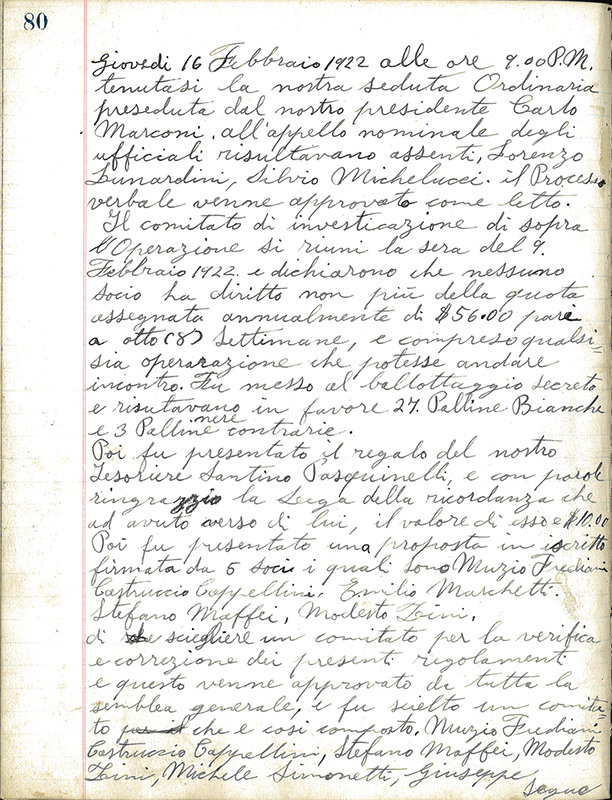 80
Giovedi 16 Febbraio 1922 alle ore 9.00 P.M.
tenutasi la nostra seduta Ordinaria
preseduta dal nostro presidente Carlo
Marconi. all'appello nominale degli
ufficiali risultavano assenti, Lorenzo
Lunardini, Silvio Michelucci. il Processo
verbale venne approvato come letto.
Il comitato di investicazione di sopra
l'Operazione si riuni la sera del 9.
Febbraio 1922. e dichiarono che nessuno
socio ha diritto non più della quota
assegnata annualmente di $56.00 pare
a otto (8) Settimane, e compreso qualsi=
sia operarazione che potesse andare
incontro. Fu messo al ballottaggio secreto
e risutavano in favore 27. Palline Bianche
e 3 Palline nere contrarie.
Poi fu presentato il regalo del nostro
Tesoriere Santino Pasquinelli, e con parole
ringrazzio la Lega della ricordanza che
ad avuto verso di lui, il valore di esso e $10.00
Poi fu presentato una proposta in iscritto
firmata da 5 socii i quali sono Muzio Frediani
Castruccio Cappellini, Emilio Marchetti.
Stefano Maffei, Modesto Zini.
di sciegliere un comitato per la verifica
e correzione dei presenti regolamenti
e questo venne approvato da tutta la
semblea generale, e fu scielto un comita=
to che e cosi composto. Muzio Frediani
Castruccio Cappellini, Stefano Maffei, Modesto
Zini, Michele Simonetti, Giuseppe,
Segue